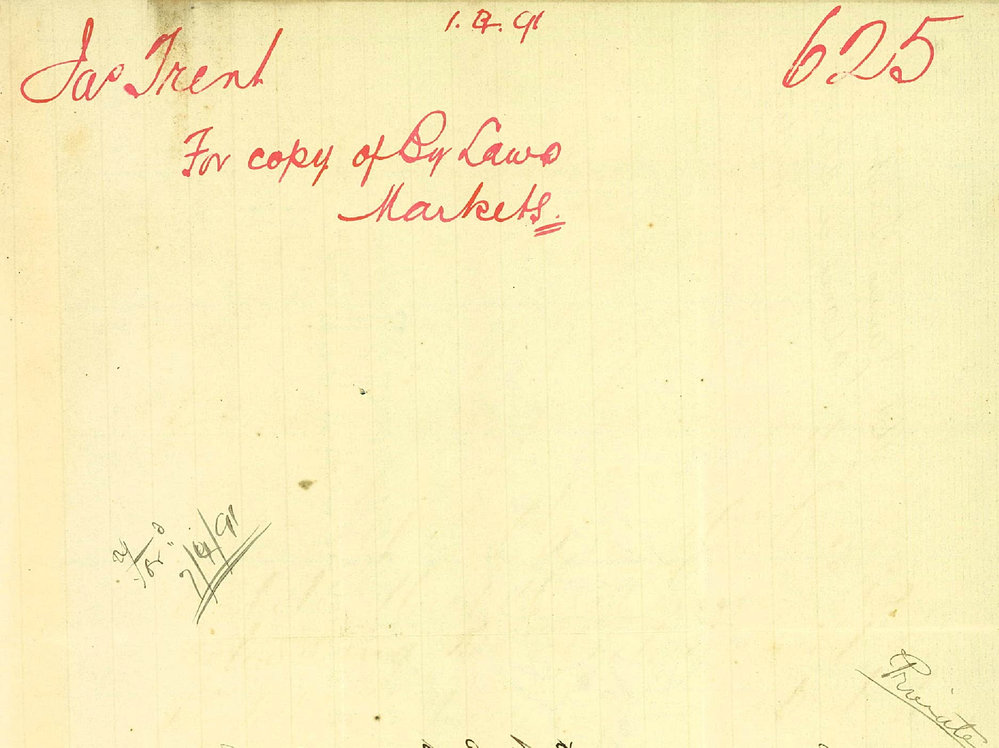 1.4.91
625
Jas Trent
For copy of By Laws
Markets.
7/4/91
Private